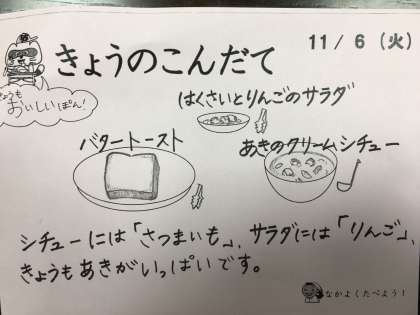 きょうのこんだて
11/6(火)
きょうも
おいしいぽん!
はくさいとりんごのサラダ
バタートースト
あきのクリームシチュー
シチューには「さつまいも」、サラダには「りんご」、
きょうもあきがいっぱいです。
なかよくたべよう!